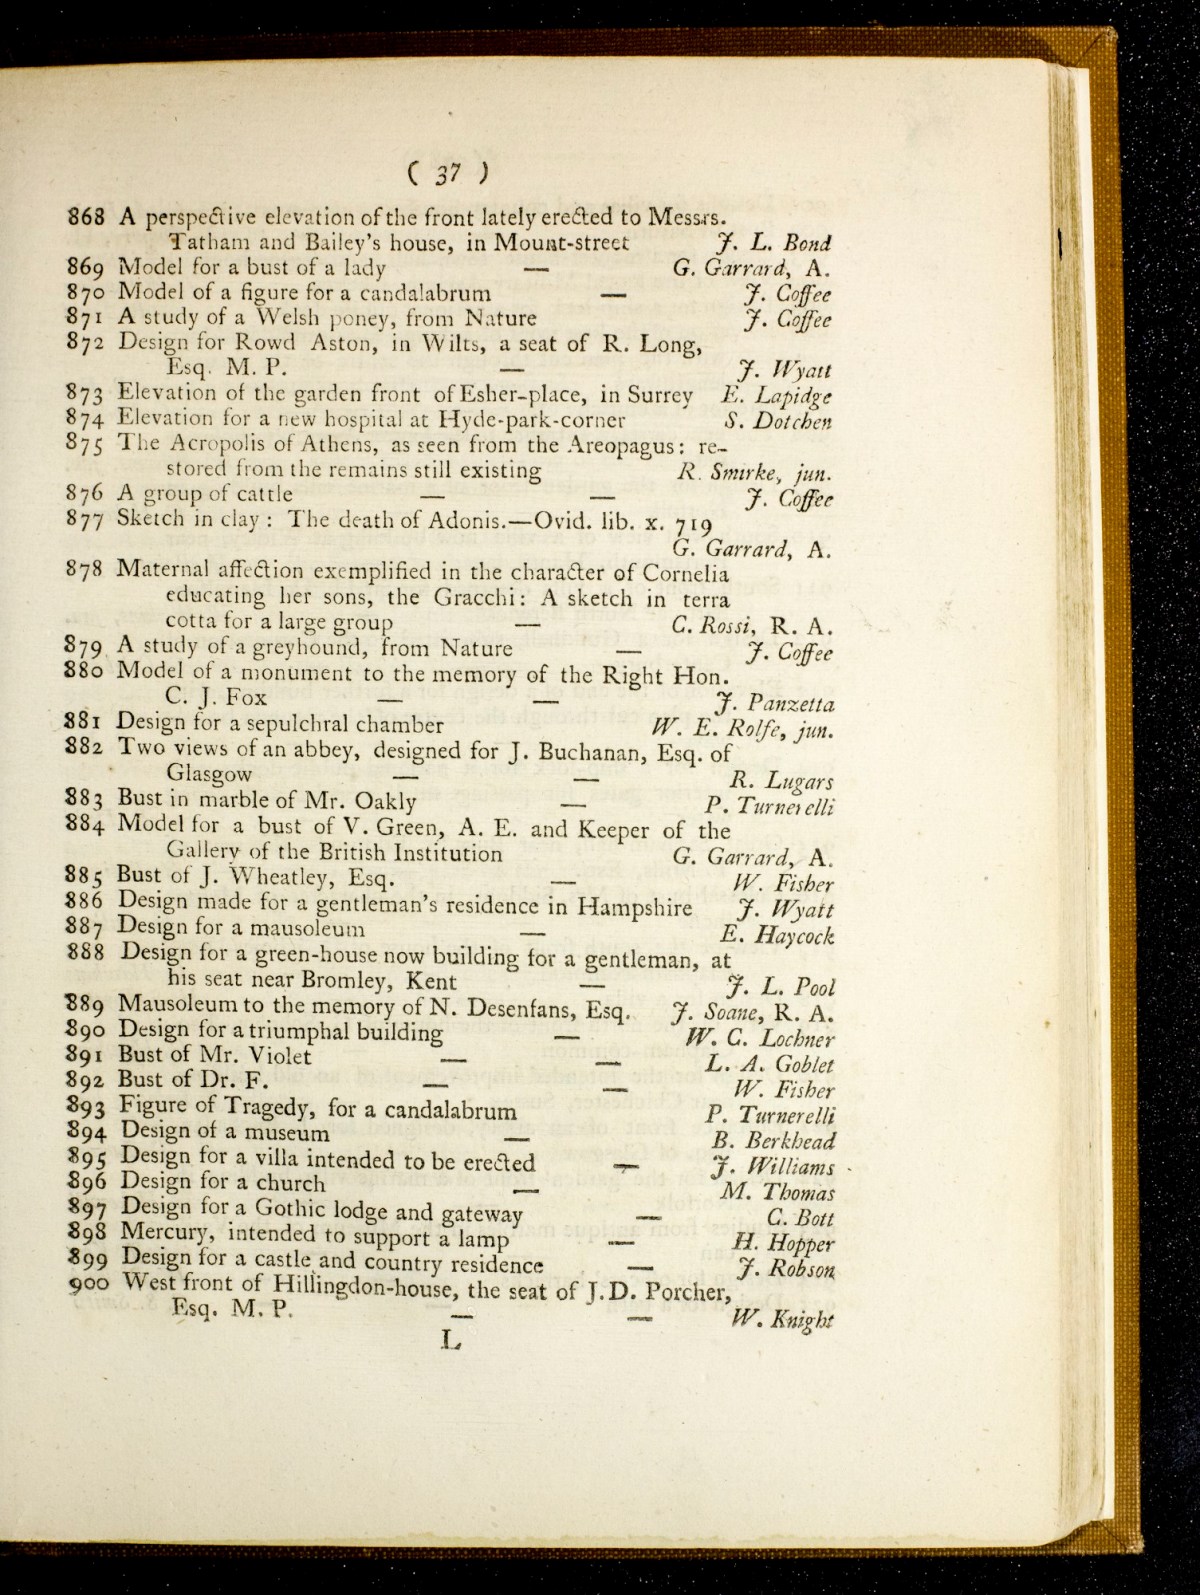 ( 37 )
868 A perspective elevation of the front lately erected to Messrs.
Tatham and Bailey's house, in Mount-street J. L. Bond
869 Model for a bust of a lady — G. Garrard, A.
870 Model of a figure for a candalabrum — J. Coffee
871 A study of a Welsh poney, from Nature J. Coffee
872 Design for Rowd Aston, in Wilts, a seat of R. Long,
Esq. M. P. — J. Wyatt
873 Elevation of the garden front of Esher-place, in Surrey E. Lapidge
874 Elevation for a new hospital at Hyde-park-corner S. Dotchen
875 The Acropolis of Athens, as seen from the Areopagus: re-
stored from the remains still existing R. Smirke, jun.
876 A group of cattle — — J. Coffee
877 Sketch in clay: The death of Adonis.—Ovid. lib. x. 719
G. Garrard, A.
878 Maternal affection exemplified in the character of Cornelia
educating her sons, the Gracchi: A sketch in terra
cotta for a large group — C. Rossi, R. A.
879 A study of a greyhound, from Nature — J. Coffee
880 Model of a monument to the memory of the Right Hon.
C. J. Fox — — J. Panzetta
881 Design for a sepulchral chamber W. E. Rolfe, jun.
882 Two views of an abbey, designed for J. Buchanan, Esq. of
Glasgow — — R. Lugars
883 Bust in marble of Mr. Oakly — P. Turnerelli
884 Model for a bust of V. Green, A. E. and Keeper of the
Gallery of the British Institution G. Garrard, A.
885 Bust of J. Wheatley, Esq. — W. Fisher
886 Design made for a gentleman's residence in Hampshire J. Wyatt
887 Design for a mausoleum — E. Haycock
888 Design for a green-house now building for a gentleman, at
his seat near Bromley, Kent — J. L. Pool
889 Mausoleum to the memory of N. Desenfans, Esq. J. Soane, R. A.
890 Design for a triumphal building — W. C. Lochner
891 Bust of Mr. Violet — — L. A. Goblet
892 Bust of Dr. F. — — W. Fisher
893 Figure of Tragedy, for a candalabrum P. Turnerelli
894 Design of a museum — B. Berkhead
895 Design for a villa intended to be erected — J. Williams
896 Design for a church — M. Thomas
897 Design for a Gothic lodge and gateway — C. Bott
898 Mercury, intended to support a lamp — H. Hopper
899 Design for a castle and country residence — J. Robson
900 West front of Hillingdon-house, the seat of J.D. Porcher,
Esq. M. P. — — W. Knight
L